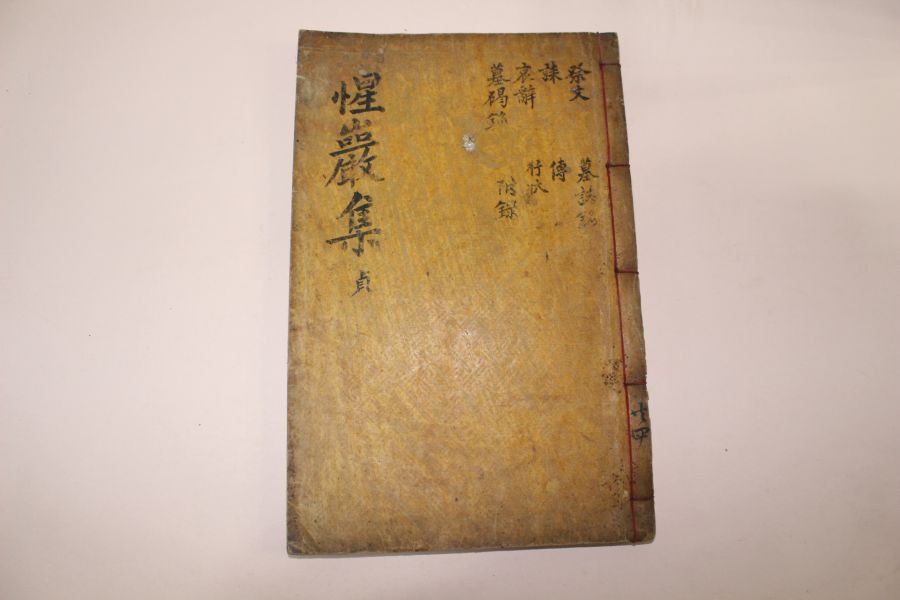 惺巖集 貞
祭文
誄
哀辭
墓碣銘
墓誌銘
傳
行狀
附錄
共四